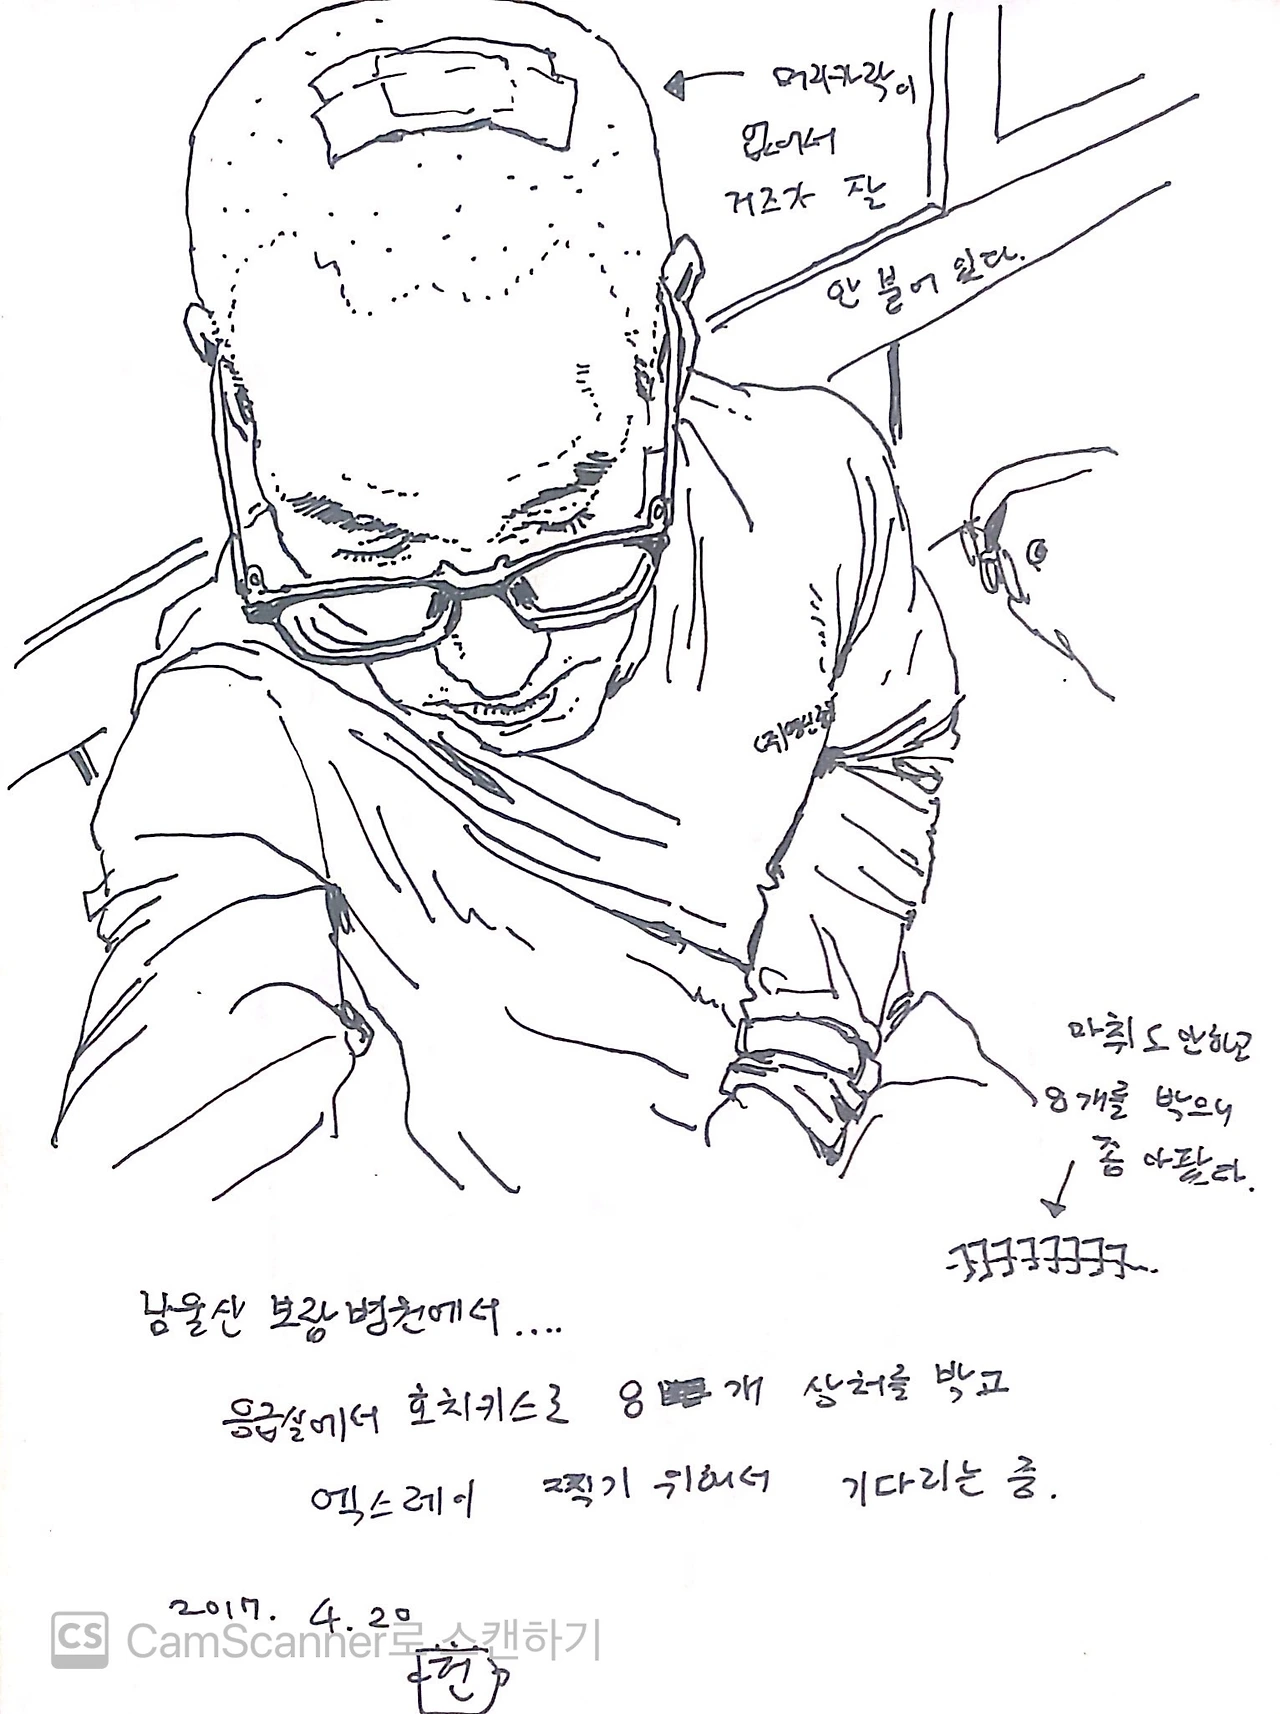 머리카락이
없어서
거즈가 잘
안 붙어 있다.
마취도 안하고
8개를 박으니
좀 아팠다.
남울산 보람병원에서....
응급실에서 호치키스로 8 개 상처를 박고
엑스레이 찍기 위해서 기다리는 중.
2017. 4. 20
CS CamScanner로 스캔하기